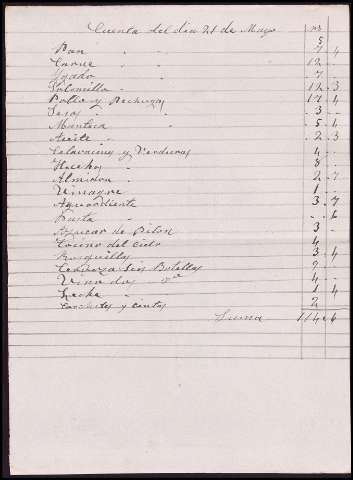 Cuenta del dia 21 de Mayo rs
5
Pan " " 7 . 4
Carne " 12 .
" 7 .
Solomillo " 12 . 3
Pollo y Pechugas 17 . 4
Sesos " 3 .
Manteca " 5 . 4
Aceite " 2 . 3
Calavacines y Verduras 4 .
Huebos " 8 .
Almidon " 2 . 7
Vinagre " 1 .
Aguardiente 3 . 7
Pasta " . 6
Azucar de Pilon 3 .
Tocino del cielo 4
Rosquillas 3 . 4
Cerbeza seis Botellas 9 .
Vino dos 4 .
Leche " 1 4
y cintas 2
Suma 114 . 6